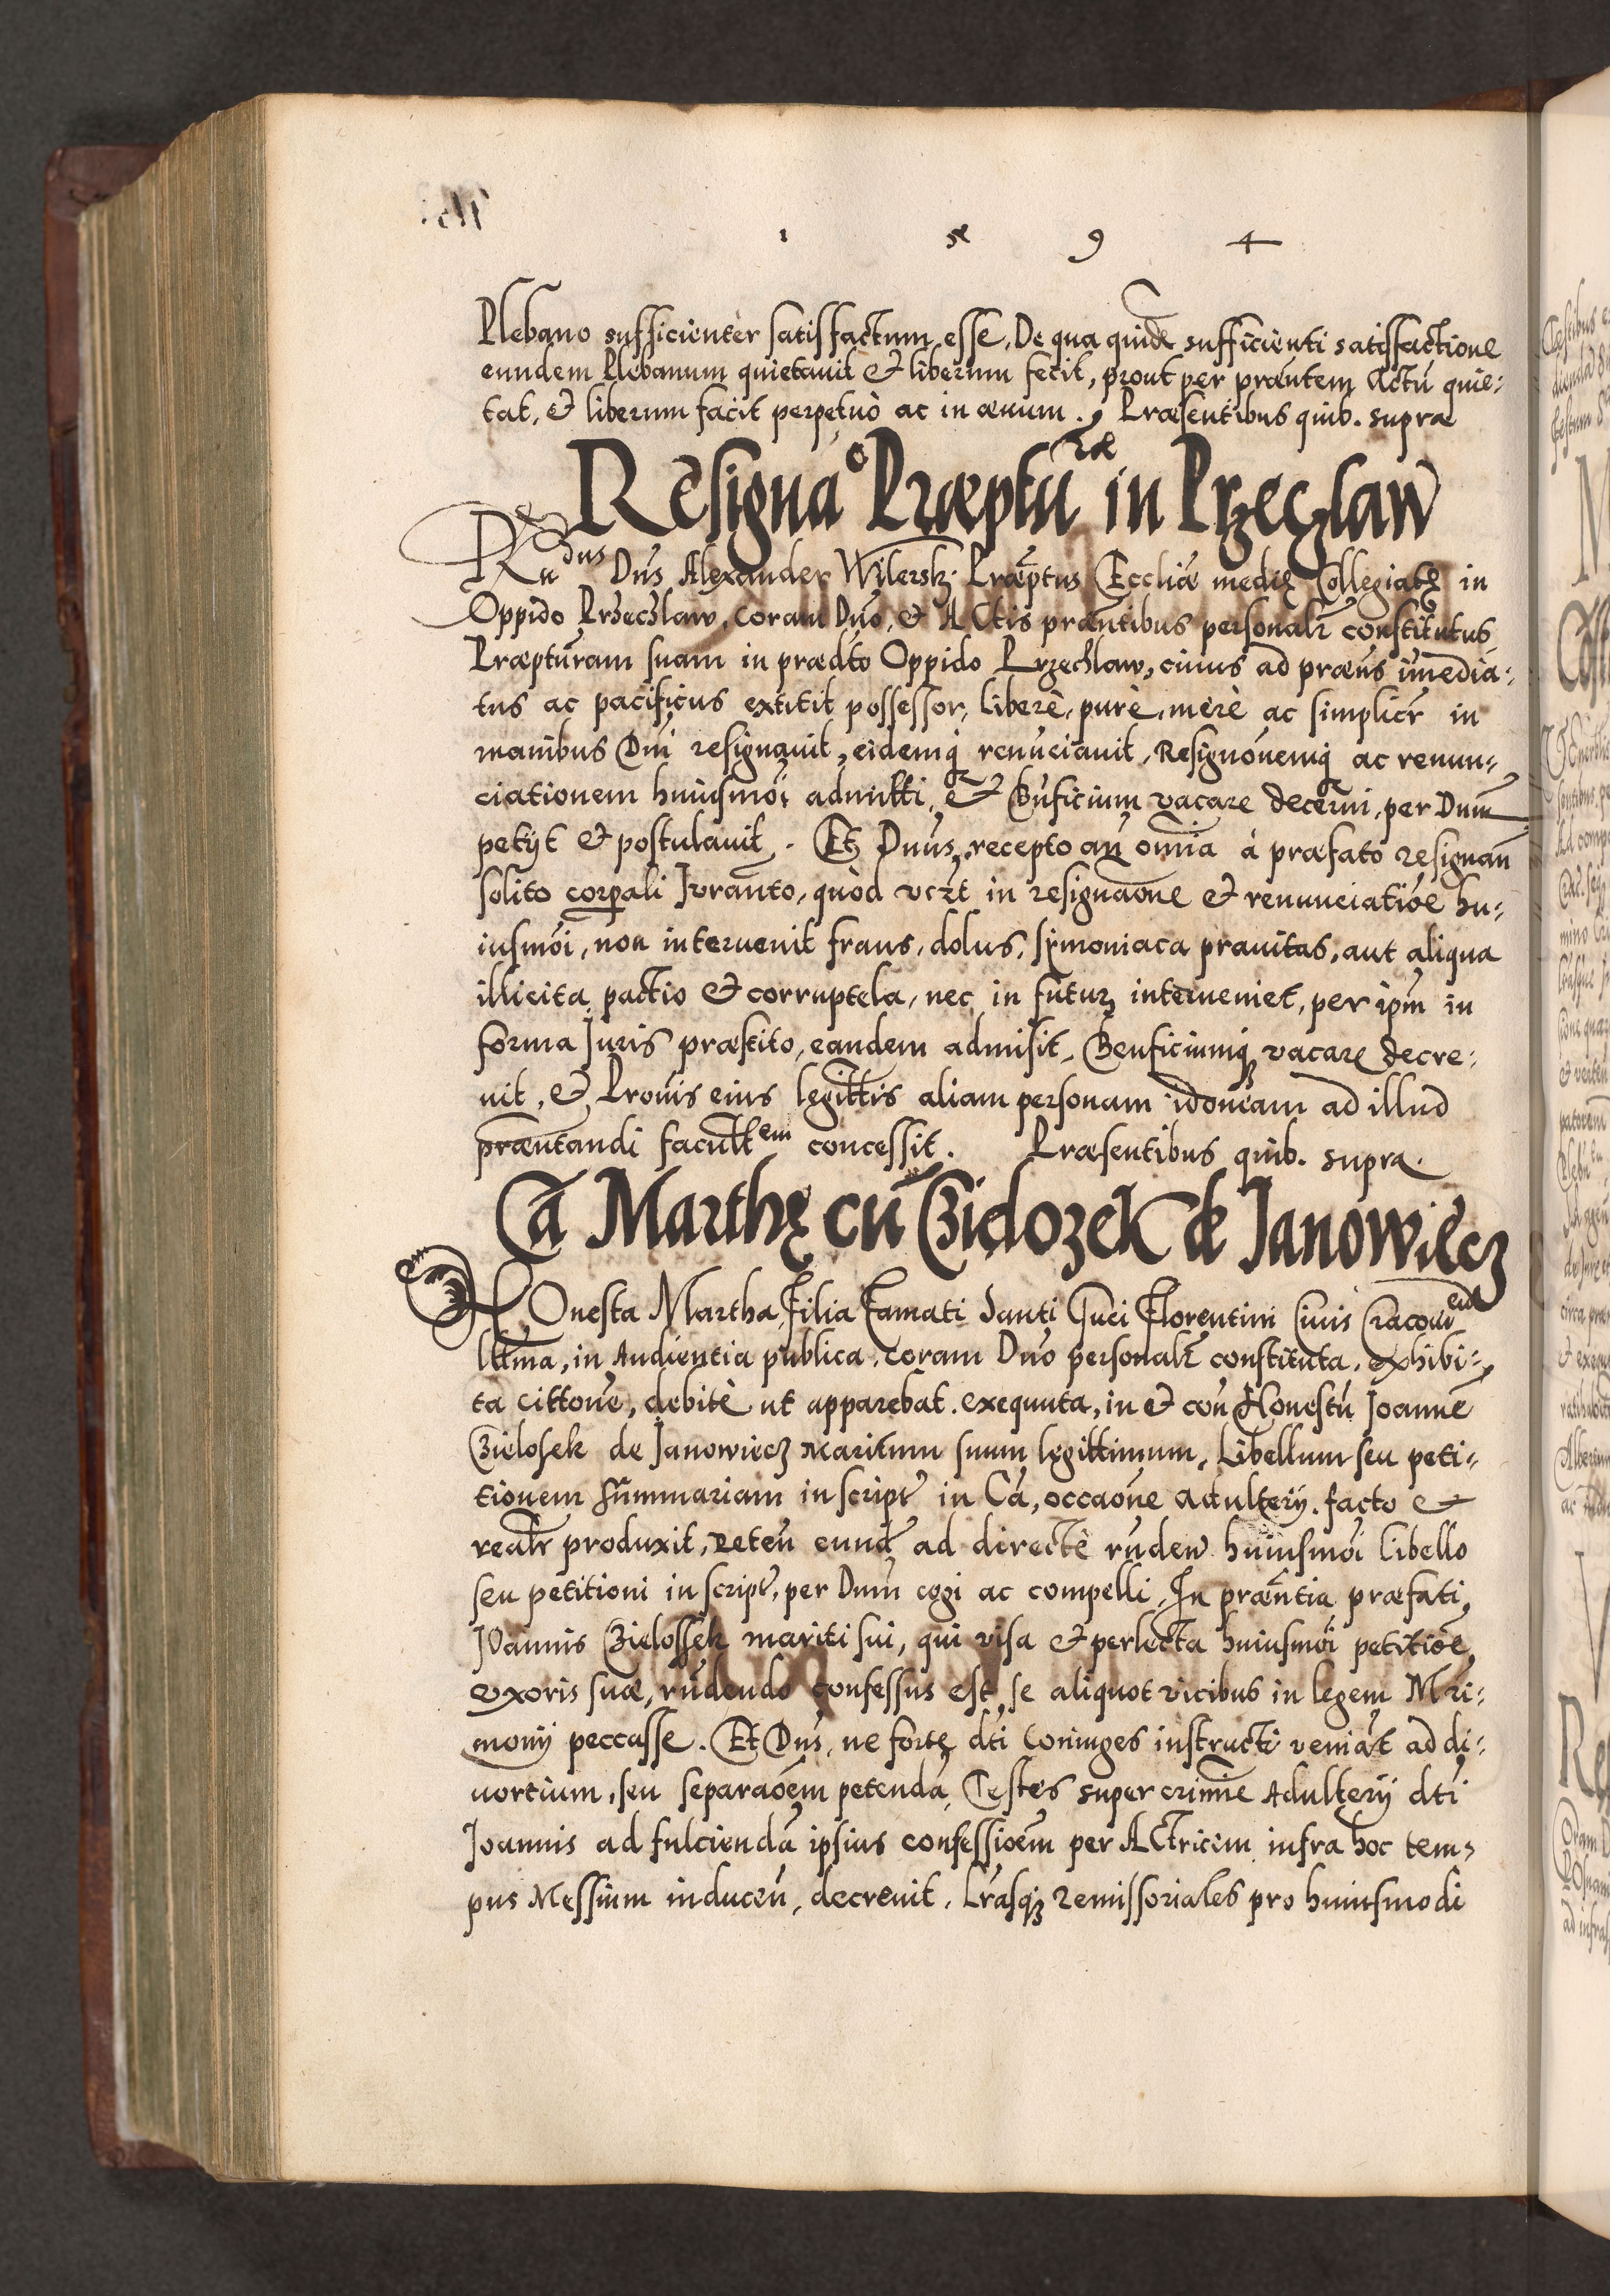 1 5 9 4
Plebano sufficienter satisfactum esse, De qua quidē sufficienti satisfactione
eundem Plebanum quietauit & liberum fecit, prout per præntem Actū quie:
tat, & liberum facit perpetuò ac in æuum. Præsentibus quib. supra
Resignaᵒ Præptuʳæ in Przeczlaw
Rndus Dn̄s Alexander Wilersk. Præptus Eccliæ medię Collegiatę in
Oppido Przeczlaw, coram Dn̄o, & Actis præntibus personalr constitutus
Præpturam suam in prædto Oppido Przechlaw, cuius ad præn̄s im̄edia:
tus ac pacificus extitit possessor, liberè, purè, merè ac simplicr in
manibus Dn̄i resignauit, eidemq̨ renūciauit, Resignōnemq̨ ac renun:
ciationem huiusmōi admitti, & Bn̄ficium vacare decerni, per Dnum
petijt & postulauit. Et Dnūs, recepto an̄ omnia à præfato resignan̄
solito corpali Iuranto, quòd vczt in resignaōne & renunciatiōe hu:
iusmōi, non interuenit fraus, dolus, symoniaca prauitas, aut aliqua
illicita pactio & corruptela, nec in futurz interueniet, per ipm̄ in
forma Iuris præstito, eandem admisit, Benficiumq̨ vacare decre:
uit, & Prouis eius legittis aliam personam idoneam ad illud
præntandi facultem concessit. Præsentibus quib. supra.
Cā Marthę cū Bielozek de Janowiecz
HOnesta Martha Filia Famati Santi Guci Florentini Ciuis Cracouien
lttma, in Audientia publica, coram Dn̄o personalr constituta, exhibi:
ta cittōne, debitè ut apparebat exequuta, in & con̄ Honestū Joannē
Bielosek de Janowiecz Maritum suum legittimum, Libellum seu peti:
tionem sum̄mariam in script in Cā, occaōne adulterij facto &
realr produxit, Peten̄ eundē ad directè rn̄den̄ huiusmōi libello
seu petitioni in script, per Dnum̄ cogi ac compelli, In præntia præfati
Joannis Bielossek mariti sui, qui visa & perlecta huiusmōi petitiōe
uxoris suæ, rn̄dendo confessus est, se aliquot vicibus in legem Mr̄i:
monij peccasse. Et Dn̄s, ne forte dti Coniuges instructi veniāt ad di:
uortium, seu separaōem petendā, Testes super crimīe Adulterij dti
Joannis ad fulciendā ipsius confessiōem per Actricem infra hoc tem:
pus Messium inducen̄, decreuit, Lrasq̨ remissoriales pro huiusmodi